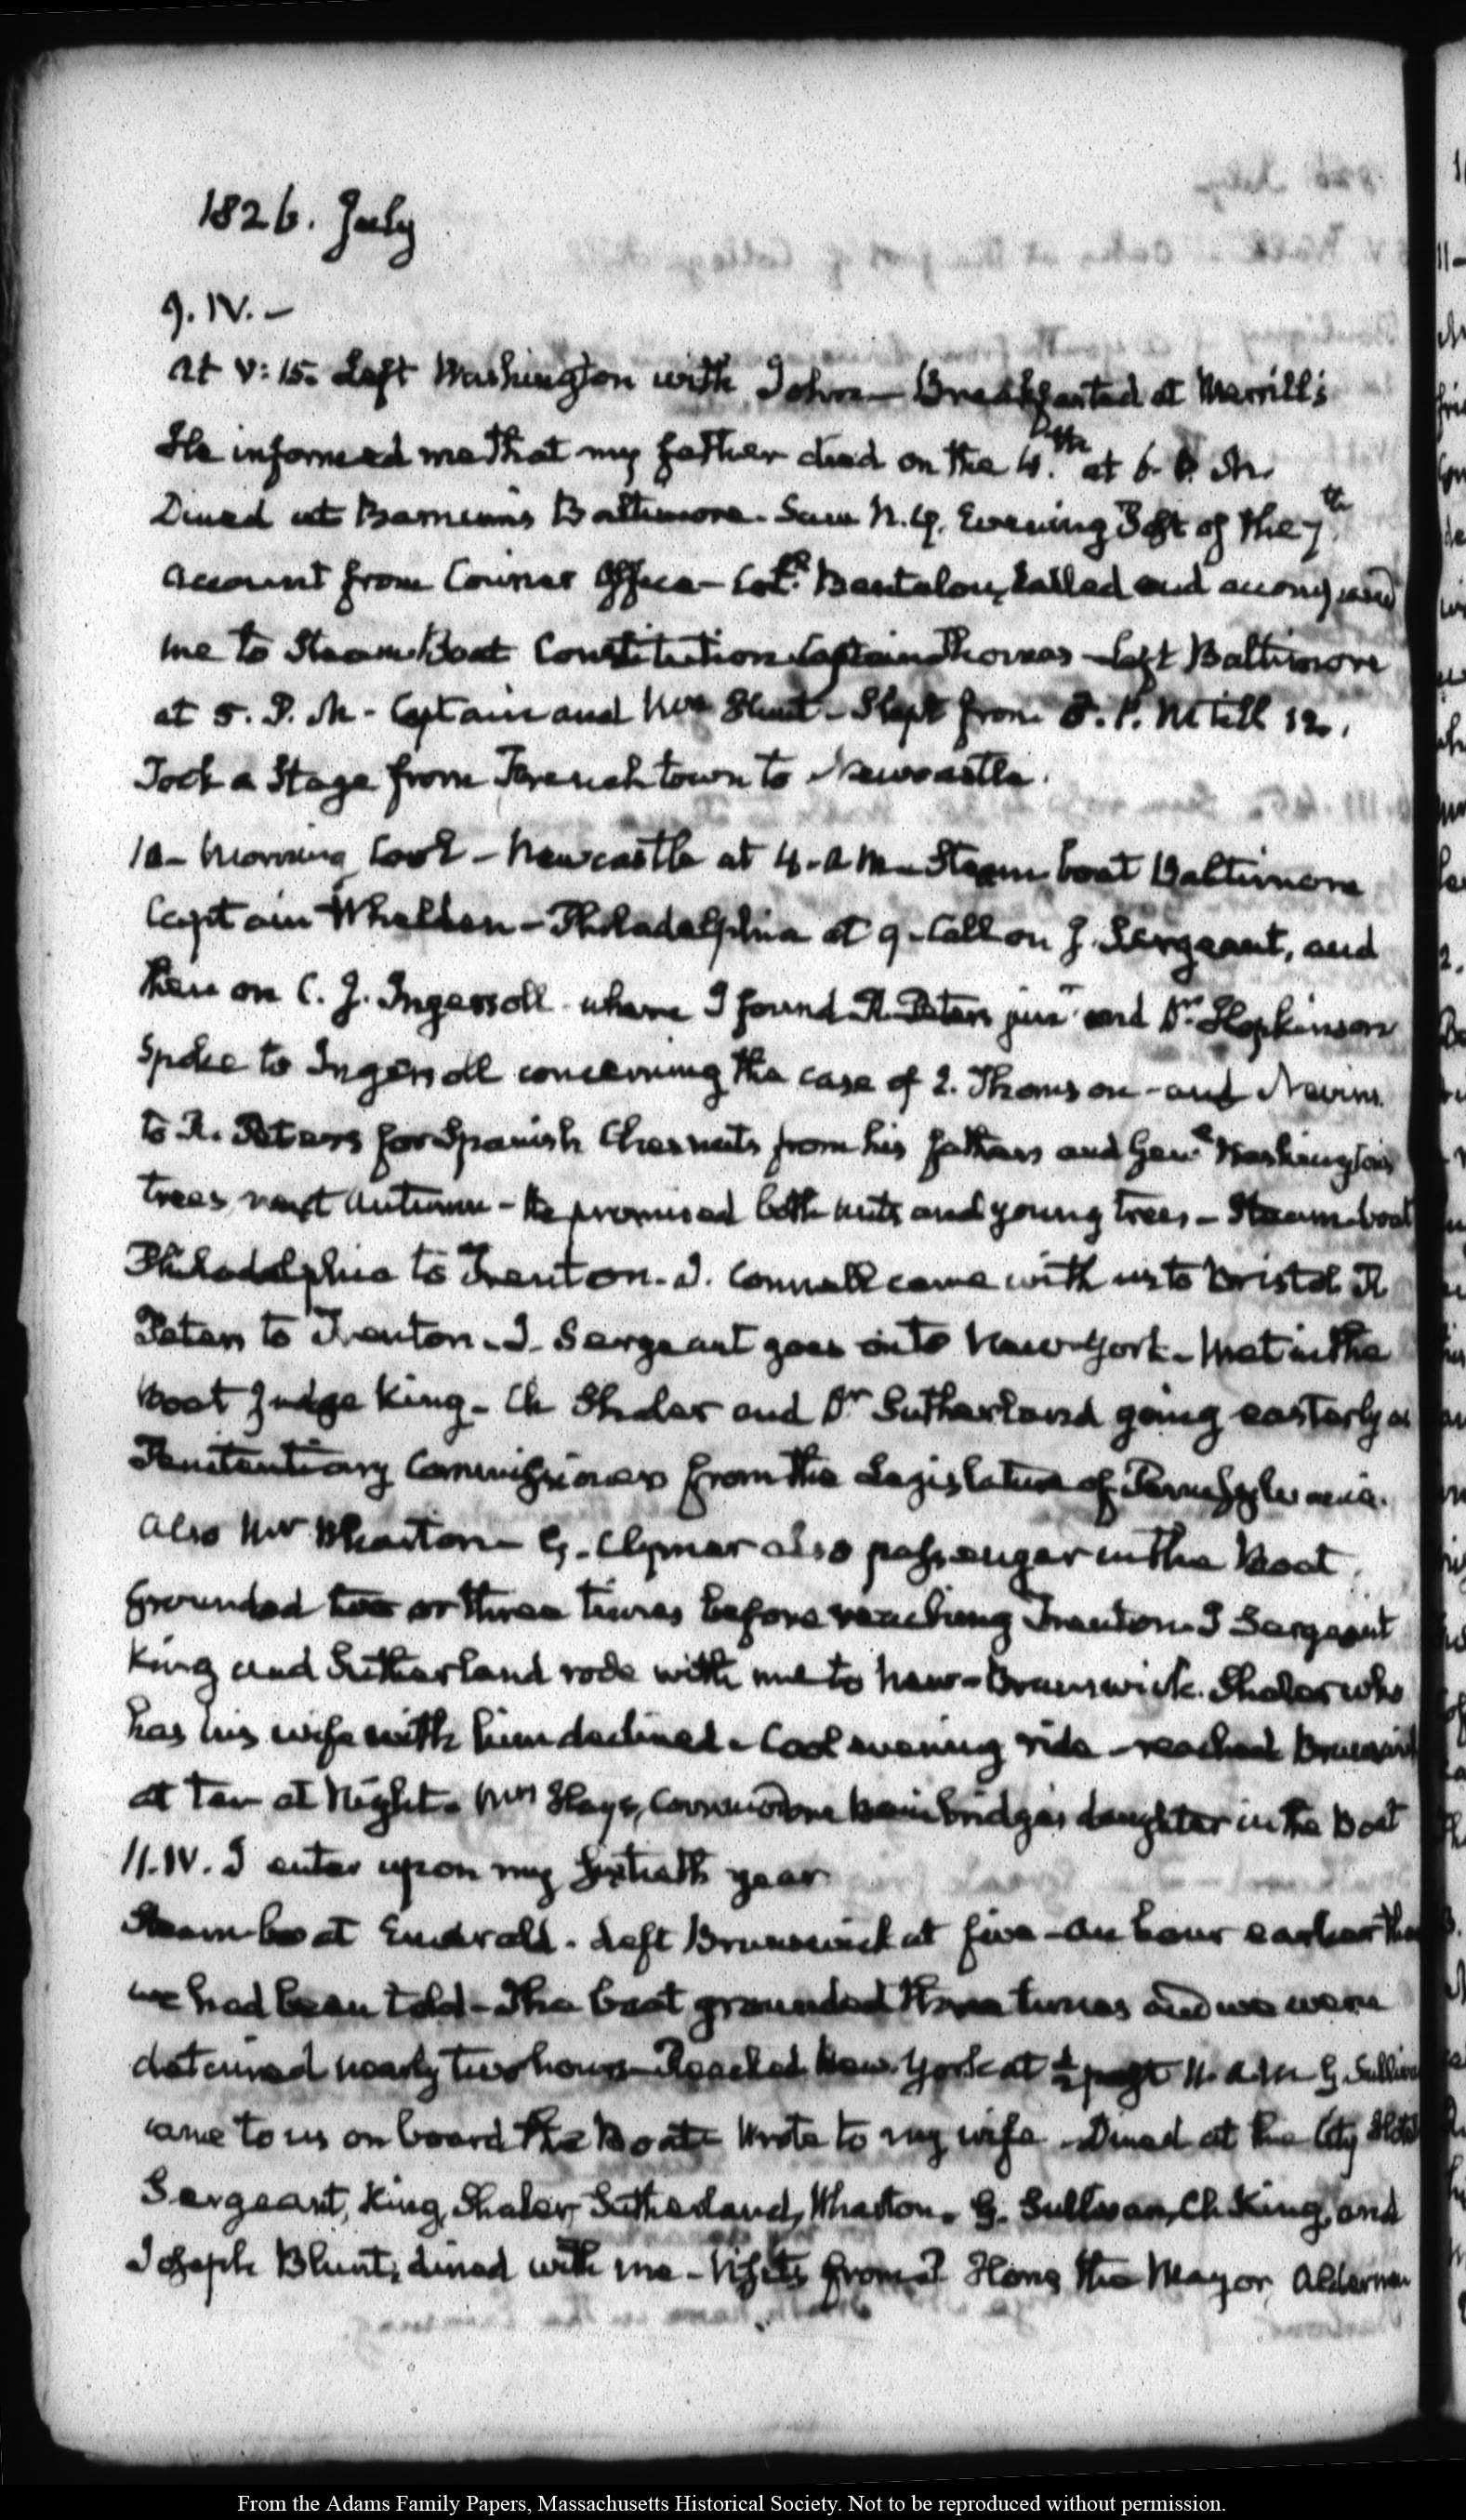 1826. July
9. IV. —
At V: 15. Left Washington with John — Breakfasted at Merrill's
He informed me that my father died on the 4.th at 6. P. M.
Dined at Barnum's Baltimore. Saw N. Y. Evening Post of the 7th
account from Courier Office — Coll. Bentalou, called and accompanied
me to Steam Boat Constitution Captain Thomas — left Baltimore
at 5. P. M. - Captain and Mrs Hunt - Slept from 8. P. M till 12.
Took a Stage from Frenchtown to Newcastle.
10 - Morning Cool - Newcastle at 4. A M — Steam boat Baltimore
Captain Whelden - Philadelphia at 9 - Call on J. Sergeant, and
then on C. J. Ingersoll where I found R. Peters junr and Dr Hopkinson
Spoke to Ingersoll concerning the case of Thomson - and Nevins.
to R. Peters for Spanish Chesnuts from his father's and Genl Washington's
trees next Autumn - He promised both nuts and young trees - Steam-boat
Philadelphia to Trenton. J. Connell came with us to Bristol R
Peters to Trenton - J. Sergeant goes on to New-York - Met in the
Boat Judge King - Ch Shaler and Dr Sutherland going easterly as
Penitentiary Commissioners from the Legislature of Pennsylvania.
Also Mr Wharton — G. Clymer also passenger in the Boat.
Grounded two or three times before reaching Trenton. J Sergeant
King and Sutherland rode with me to New-Brunswick. Shaler who
has his wife with him declined - Cool evening ride - reached Brunswick
at ten at Night. Mrs Hayes, Commodore Bainbridge's daughter in the Boat
11. IV. I enter upon my sixtieth year
Steam-boat Emerald. Left Brunswick at five - An hour earlier than
we had been told - The boat grounded three times and we were
detained nearly two hours — Reached New-York at ½ past 11. A. M G Sullivan
came to us on board the Boat - Wrote to my wife - Dined at the City Hotel
Sergeant, King, Shaler, Sutherland, Wharton, G. Sullivan, Ch King, and
Joseph Blunt, dined with me - Visits from P Hone the Mayor, Aldermen